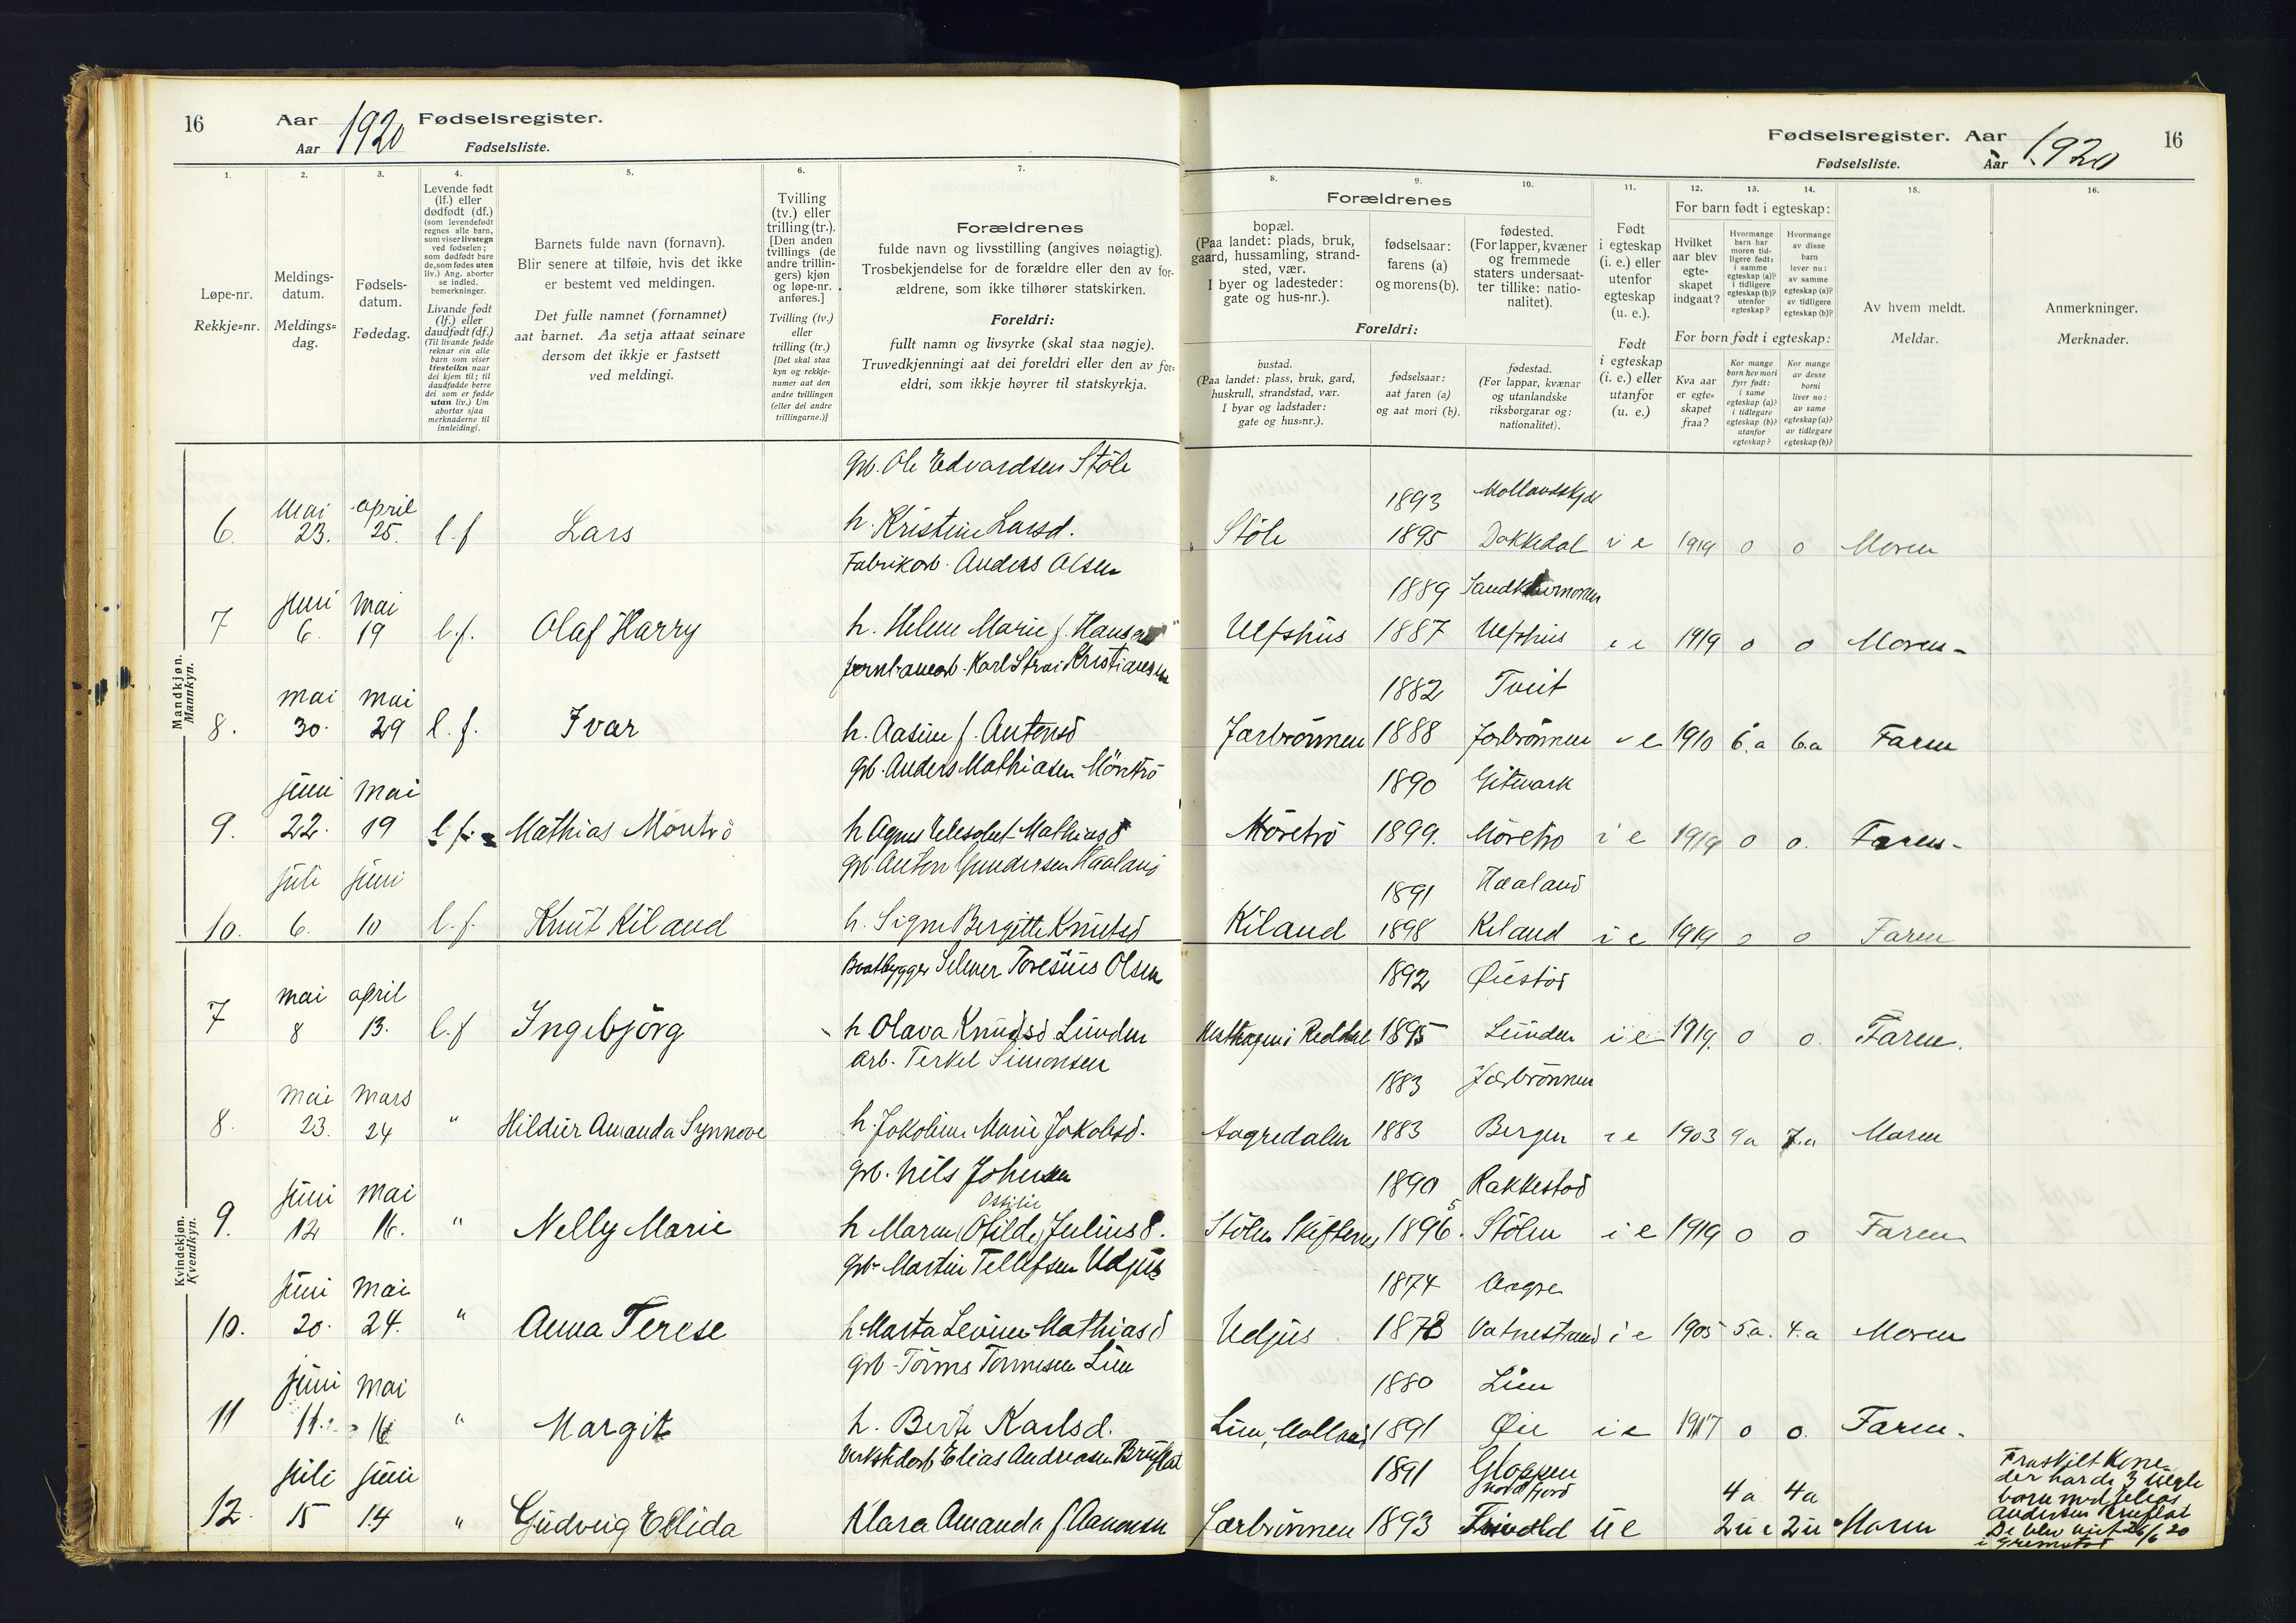 16 Aar 1920 Fødselsregister.
Aar Fødselsliste.
Fødselsregister. Aar 1920 16
Fødselsliste. Aar
1. 2. 3. 4. 5. 6. 7.
Løpe-nr.
Rekkje=nr.
Meldings-
datum.
Meldings=
dag.
Fødsels-
datum.
Fødedag.
Levende født
(lf.) eller
dødfødt (df.)
(som levendefødt
regnes alle barn,
som viser livstegn
ved fødselen;
som dødfødt bare
de, som fødes uten
liv.) Ang. aborter
se indled.
bemerkninger.
Livande født
(lf.) eller
daudfødt (df.)
(Til livande fødde
reknar ein alle
barn som viser
livsteikn naar
dei kjem til; til
daudfødde berre
dei som er fødde
utan liv.) Um
abortar sjaa
merknaderne til
innleidingi.
Barnets fulde navn (fornavn).
Blir senere at tilføie, hvis det ikke
er bestemt ved meldingen.
Det fulle namnet (fornamnet)
aat barnet. Aa setja attaat seinare
dersom det ikkje er fastsett
ved meldingi.
Tvilling
(tv.) eller
trilling (tr.).
[Den anden
tvillings (de
andre trillin-
gers) kjøn
og løpe-nr.
anføres.]
Tvilling (tv.)
eller
trilling (tr.)
[Det skal staa
kyn og rekkje-
numer aat den
andre tvillingen
(eller dei andre
trillingarne.)]
Forældrenes
fulde navn og livsstilling (angives nøiagtig).
Trosbekjendelse for de forældre eller den av for-
ældrene, som ikke tilhører statskirken.
Foreldri:
fullt namn og livsyrke (skal staa nøgje).
Truvedkjenningi aat dei foreldri eller den av for-
eldri, som ikkje høyrer til statskyrkja.
8. 9. 10. 11. 12. 13. 14. 15. 16.
Forældrenes
bopæl.
(Paa landet: plads, bruk,
gaard, hussamling, strand-
sted, vær.
I byer og ladesteder:
gate og hus-nr.).
fødselsaar:
farens (a)
og morens (b).
fødested.
(For lapper, kvæner
og fremmede
staters undersaat-
ter tillike: natio-
nalitet).
Foreldri:
bustad.
(Paa landet: plass, bruk, gard,
huskrull, strandstad, vær.
I byar og ladstader:
gate og hus=nr.).
fødselsaar:
aat faren (a)
og aat mori (b).
fødestad.
(For lappar, kvænar
og utanlandske
riksborgarar og:
nationalitet).
Født
i egteskap
(i. e.) eller
utenfor
egteskap
(u. e.).
Født
i egteskap
(i. e.) eller
utanfor
(u. e.)
For barn født i egteskap:
Hvilket
aar blev
egte-
skapet
indgaat?
Hvormange
barn har
moren tid-
ligere født:
i samme
egteskap (a)?
i tidligere
egteskap (b)?
utenfor
egteskap?
Hvormange
av disse
barn
lever nu:
av samme
egteskap (a)?
av tidligere
egteskap (b)?
For born født i egteskap:
Kva aar
er egte-
skapet
fraa?
Kor mange
born hev mori
fyrr født:
i same
egteskap (a)?
i tidlegare
egteskap (b)?
utanfor
egteskap?
Kor mange
av desse
borni
liver no:
av same
egteskap (a)?
av tidlegare
egteskap (b)?
Av hvem meldt.
Meldar.
Anmerkninger.
Merknader.
Mandkjøn.
Mannkyn.
grb. Ole Edvardsen Støle
1893
6. Mai 23. april 25. l.f Lars h. Kristine Larsd. Støle 1895 Dakkedal i e 1919 0 0 Moren
Fabrikarb. Anders Olsen
1889
7 Juni 6. Mai 19 l.f. Olaf Harry h. Helene Marie f. Hansen Ulfshus 1887 Ulfshus i e 1919 0 0 Moren-
Karl Kristiansen
1882 Tveit
8. mai 30. mai 29 l.f. Ivar h. Aasine f. Antensd Jærbrønnen 1888 Jærbrønnen i e 1910 6.a 6.a Faren
grb. Anders Mathiasen Möretrö
1890 Gitmark
9. juni 22. mai 19 l.f. Mathias Möretrö h Agnes Elesabet Mathiasd Möretrö 1899. Möretrö i e 1919 0 0. Faren-
grb. Anton Gundersen Haaland
1891 Haaland
10. juli 6. juni 10 l.f. Knut Kiland h. Signe Bergitte Knutsd Kiland 1898 Kiland i e 1919 0 0 Faren
Kvindekjøn.
Kvendkyn.
Baatbygger Selmer Toresius Olsen
1892 Øiestad
7 mai 8 april 13. l.f Ingebjörg h Olava Knudsd. Lunden Reddal 1895 Lunden i e 1919. 0 0. Faren.
arb. Terkel Simonsen
1883 Jærbrönnen
8. Mai 23. Mars 24 " Hildur Amanda Synnove h. Jakobine Marie Jakobsd. Aagredalen 1883 Bergen i e 1903 9a 7.a Moren
grb. Nils Johnsen
1890 Rakkestad
9. Juni 12 Mai 16. " Nelly Marie h Maren (Otilde) Julius d. Stölen Skiftenes 1896. Stölen i e 1919 0 0 Faren
Ottilie 5
grb. Martin Tellefsen Udjus
1874 Aagre
10. Juni 20. Mai 24. " Anna Terese h. Marta Levine Mathiasd Udjus 1878 Vatnestrand i e 1905 5a. 4.a Moren
grb. Torms Tormsen Lien
1880 Lien
11 Juni 11. mai 16 " Margit h. Berte Karlsd. Lien, 1891 Øie i e 1917 0 0. Faren.
Verkstedarb Elias Andreasen Bruflat
1891 Gloppen
Nordfjord
4a 4a
12. Juli 15 Juni 14 " Gudveig Ellida Klara Amanda f Aanonsen Jærbrönnen 1893 u e 2 u e 2 u e Moren
Fraskilt Kone
der har de 3 uegte
barn med Elias
Andersen Bruflat
De blev viet 26/6 20
i Grimstad